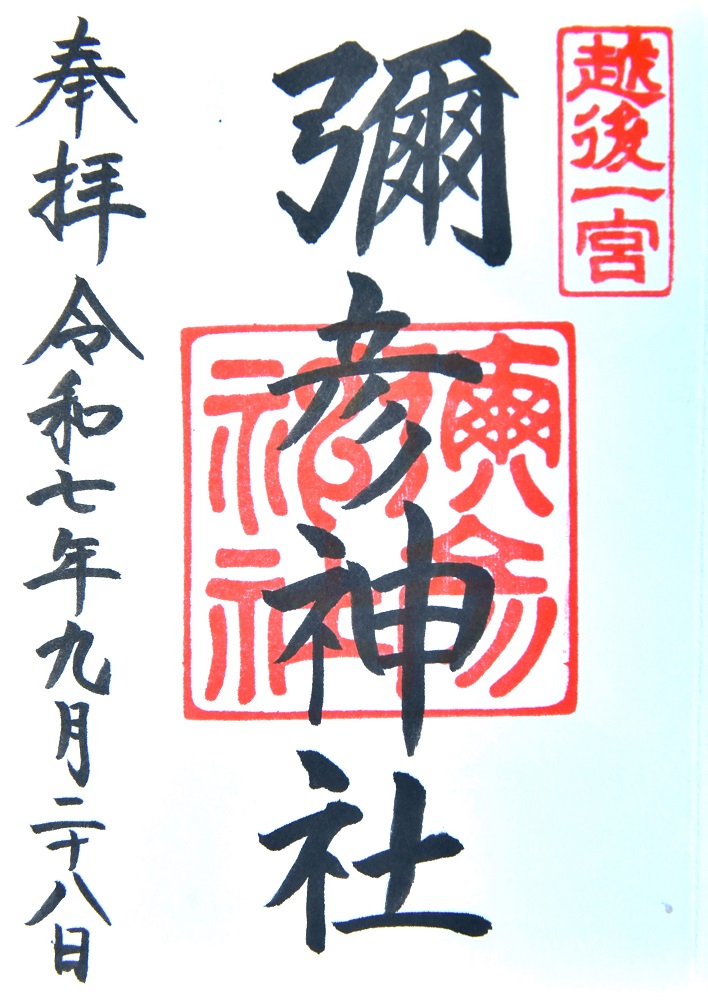 越後一宮
彌彦神社
奉拝 令和七年九月二十八日